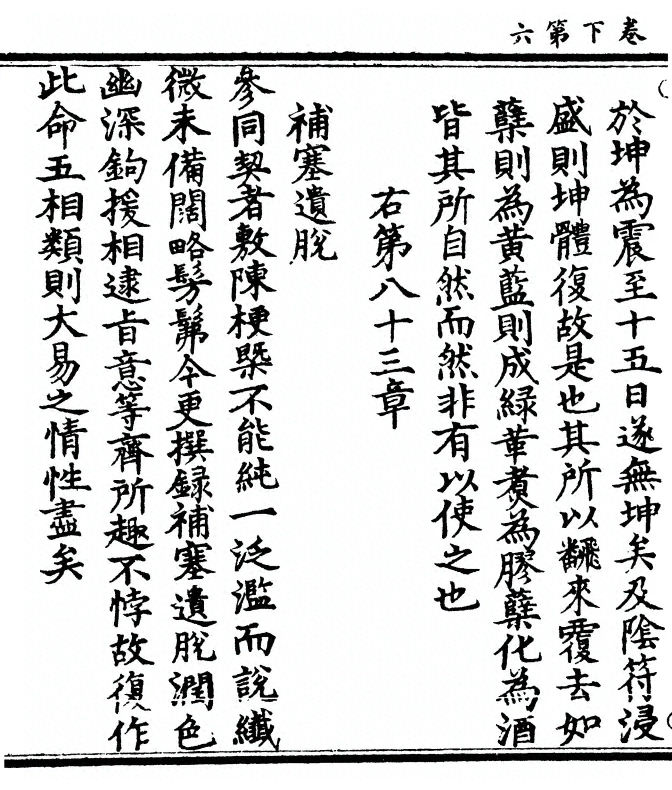 卷下第六
於坤為震至十五日遂無坤矣及陰符浸
盛則坤體復故是也其所以飜來覆去如
蘗則為黄藍則成緑葦煑為膠蘖化為酒
皆其所自然而然非有以使之也
右第八十三章
補塞遺脫
參同契者敷陳梗槩不能純一泛濫而說纖
微未備闊略髣髴今更撰録補塞遺脫潤色
幽深鉤援相逮旨意等齊所趣不悖故復作
此命五相類則大易之情性盡矣